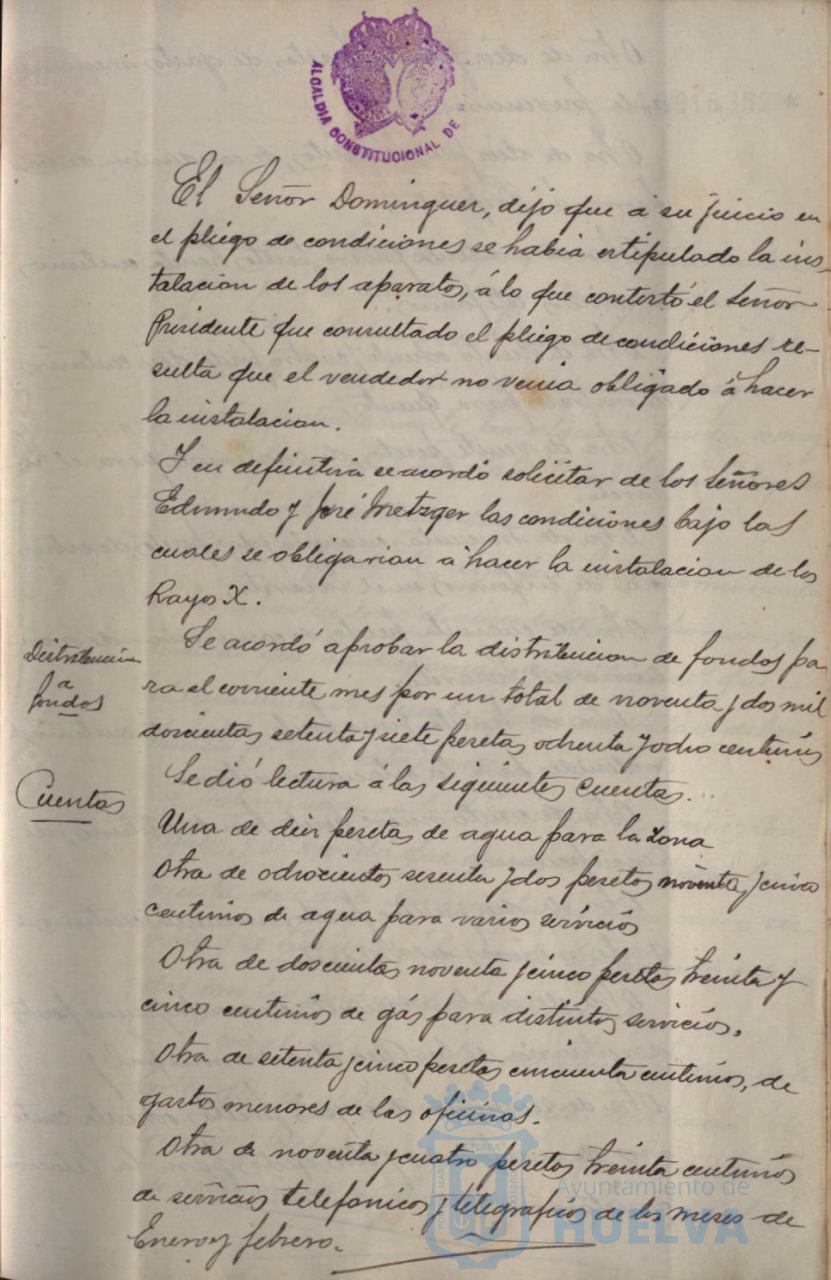 ALCALDIA CONSTITUCIONAL DE
El Señor Dominguez, dijo que á su juicio en
el pliego de condiciones se habia estipulado la ins-
talacion de los aparatos, á lo que contestó el Señor
Presidente que consultado el pliego de condiciones re-
sulta que el vendedor no venia obligado á hacer
la instalacion.
Y en definitiva se acordó solicitar de los Señores
Edmundo y José Metzger las condiciones bajo las
cuales se obligarian á hacer la instalacion de los
Rayos X.
Distribucion
fondos
Se acordó aprobar la distribucion de fondos pa-
ra el corriente mes por un total de noventa y dos mil
doscientas setenta y siete pesetas ochenta y ocho centimos
Cuentas
Se dió lectura á las siguientes cuentas.
Una de diez pesetas de agua para la zona
Otra de ochocientos sesenta y dos pesetas noventa y cinco
centimos de agua para varios servicios
Otra de doscientas noventa y cinco pesetas treinta y
cinco centimos de gás para distintos servicios.
Otra de setenta y cinco pesetas cincuenta centimos, de
gastos menores de las oficinas.
Otra de noventa y cuatro pesetas treinta centimos
de servicios telefonicos y telegraficos de los meses de
Enero y febrero.
Ayuntamiento de
HUELVA